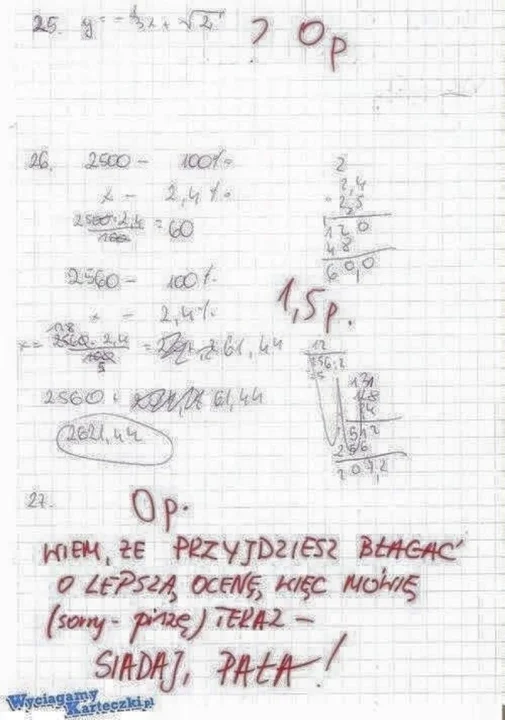 25. y = -1/3x + √2 ? 0p
26. 2500 - 100%
x - 2,4%
2500·2,4/100 = 60
2
2,4
· 25
120
48
60,0
2560 - 100%
x - 2,4%
1,5p.
x = 2560·2,4/100 = 61,44
128
5
2560 + 61,44
2621,44
27. 0p.
WIEM, ŻE PRZYJDZIESZ BŁAGAĆ
O LEPSZĄ OCENĘ, WIĘC MÓWIĘ
(sorry - piszę) TERAZ -
SIADAJ, PAŁA!
Wyciagamy
Karteczki.pl